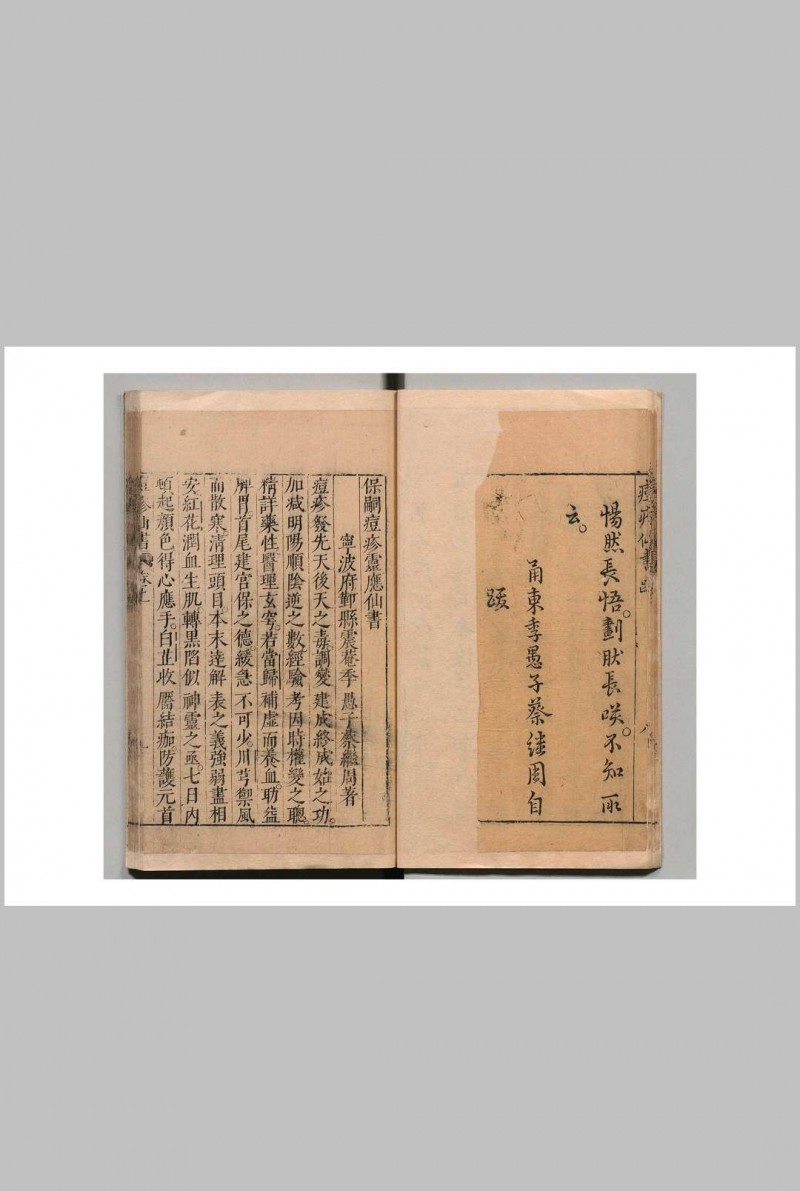 痘疹仙書
惕然長悟。劃肰長嘆。不知所
云。
甬東季愚子蔡繼周自
跋
保嗣痘疹靈應仙書
寧波府鄞縣震菴季愚子蔡繼周著
痘疹發先天後天之毒。調變建成終成始之功。
加減明陽順陰逆之數經驗考因時權變之聰
精詳藥性醫理玄窮。若當歸補虛而養血。助益
脾胃首尾建宫保之德。緩急不可少。川芎禦風
而散寒清理頭目。本末達解表之義。強弱盡相
安紅花潤血生肌轉黑陷似神靈之亟。七日內
頓起顏色得心應手。白芷收靨結痂防護元首
痘疹仙書